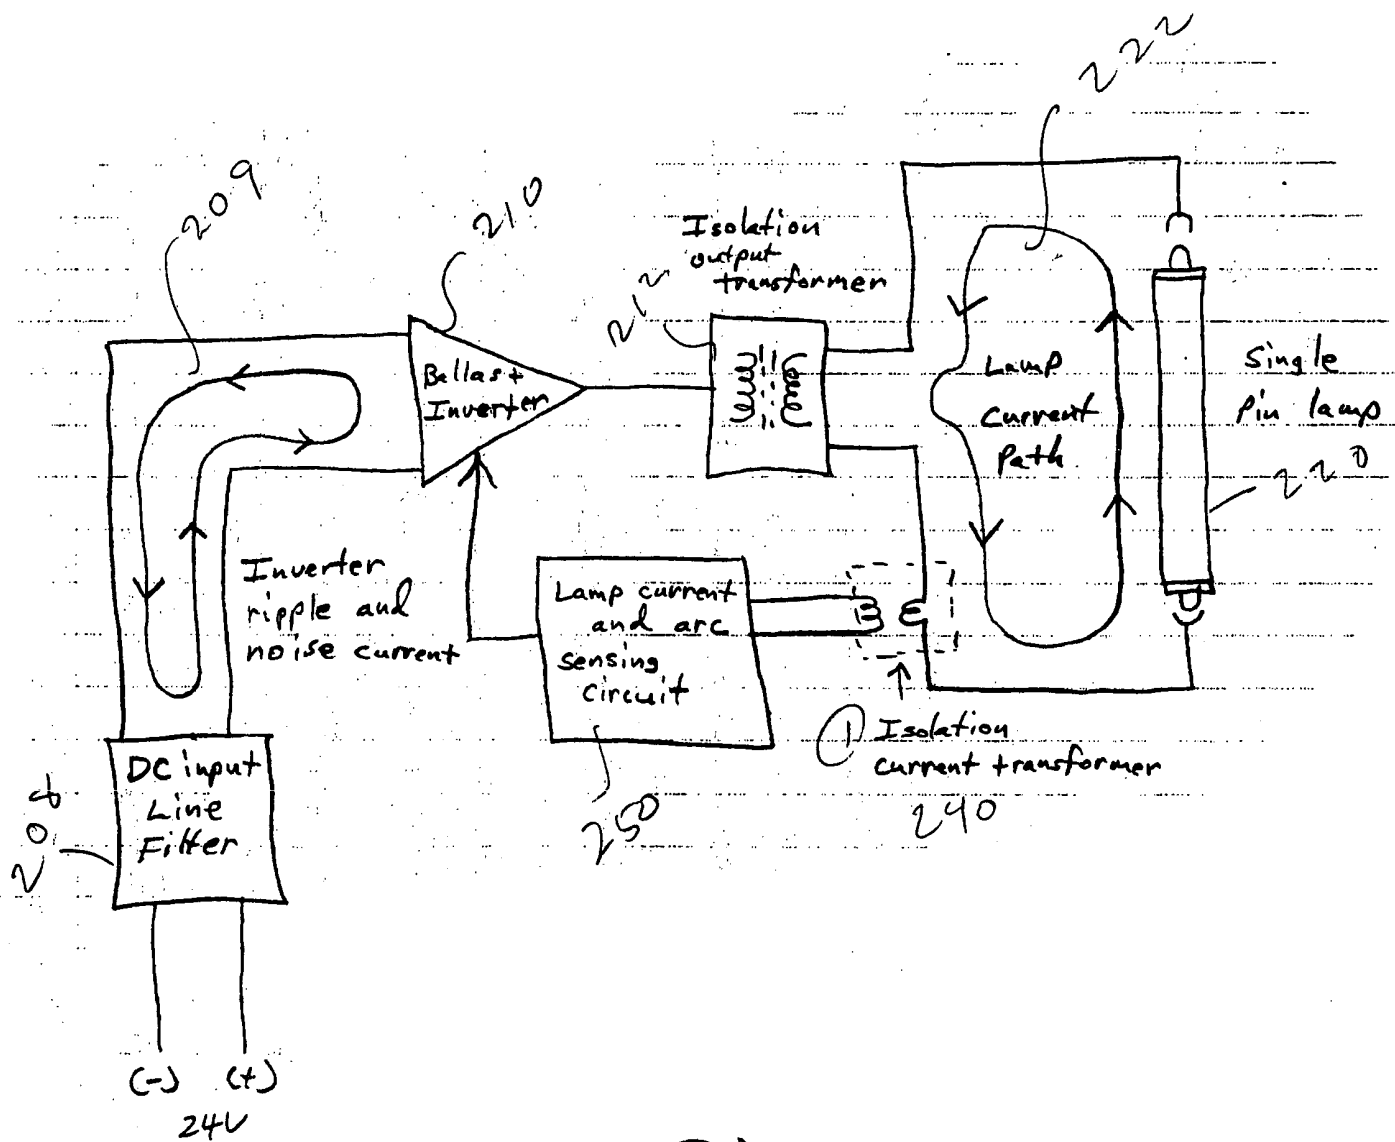 222
209
210
Isolation
output
transformer
212
Ballast
Inverter
Lamp
Current
Path
Single
Pin lamp
220
Inverter
ripple and
noise current
Lamp current
and arc
sensing
circuit
1 Isolation
current transformer
240
250
DC input
Line
Filter
(-) (+)
24V